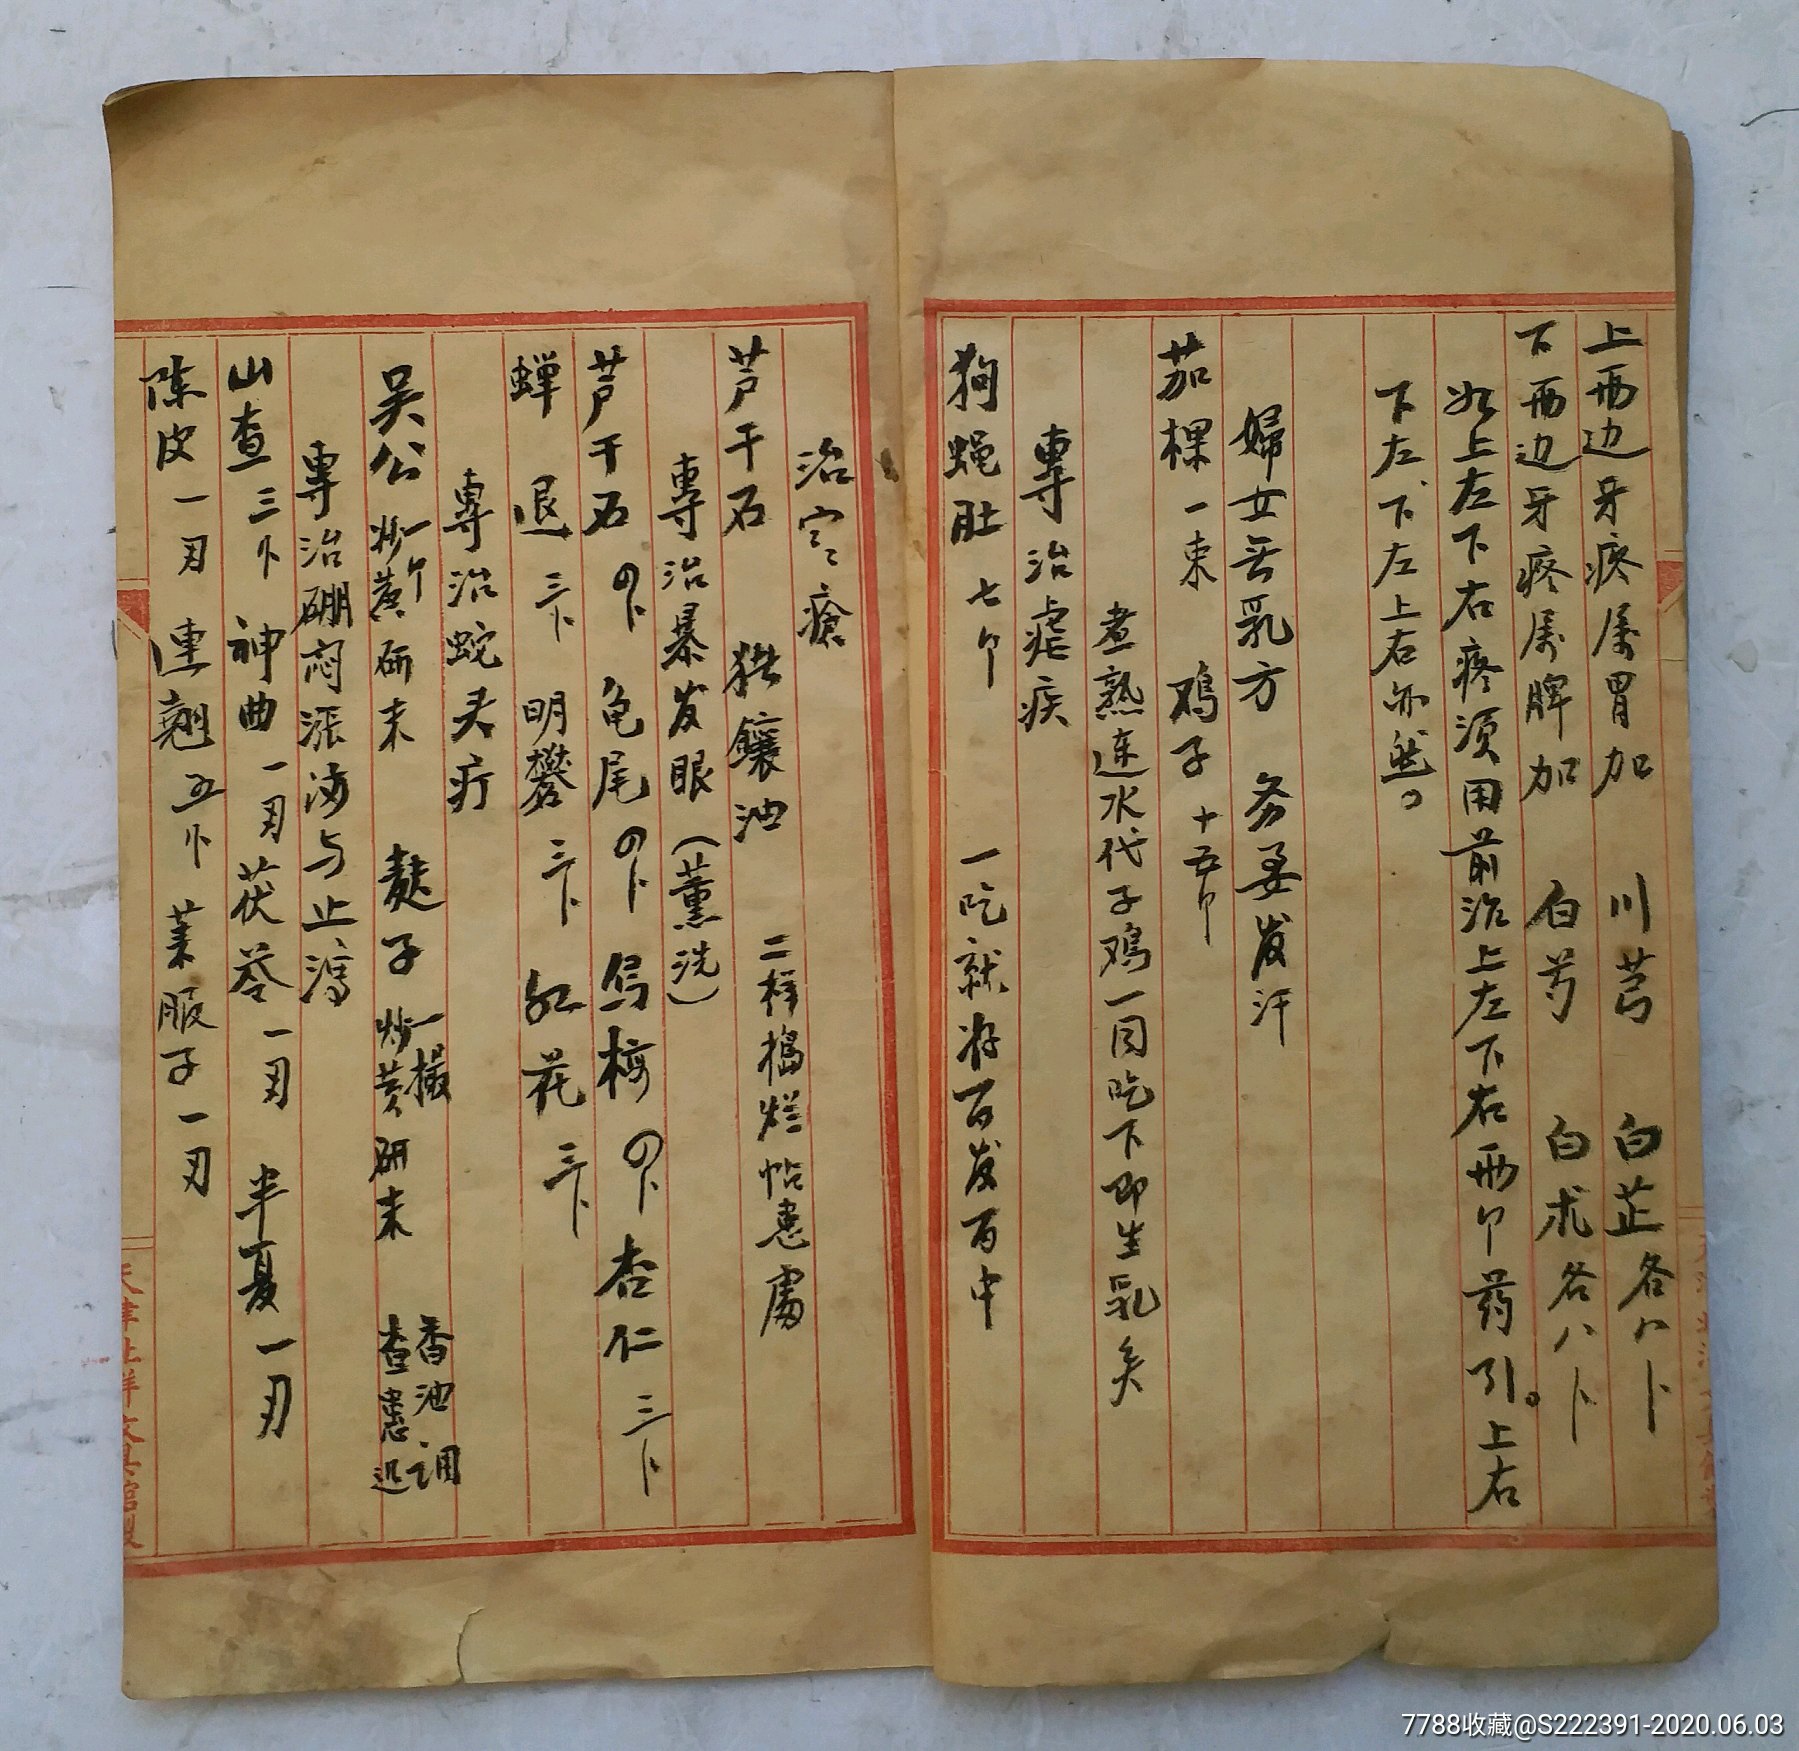 上両边牙疼属胃加 川芎 白芷各八卜
下両边牙疼属脾加 白芍 白术各八卜
如上左下右疼须用前治上左下右両卩药引。上右
下左、下左上右亦然。
婦女无乳方 务要发汗
茄棵一束 鸡子十五卩
煮熟连水代子鸡一同吃下即生乳矣
專治虐疾
狗蝇肚 七卩 一吃就好百发百中
治疮
芦干石 猪鑲油 二样搗烂帖患處
專治暴发眼(薰洗)
芦干石 四卜 龟尾 四卜 乌梅 四卜 杏仁 三卜
蝉退 三卜 明礬 三卜 红花 三卜
專治蛇头疔
吴公 一个炒黄研末 麸子 一撮炒黄研末 香油调查患处
專治硼闷涨消与止瀉
山查 三卜 神曲 一刃 茯苓 一刃 半夏 一刃
陈皮 一刃 連翘 五卜 莱服子 一刃
7788收藏@S222391-2020.06.03